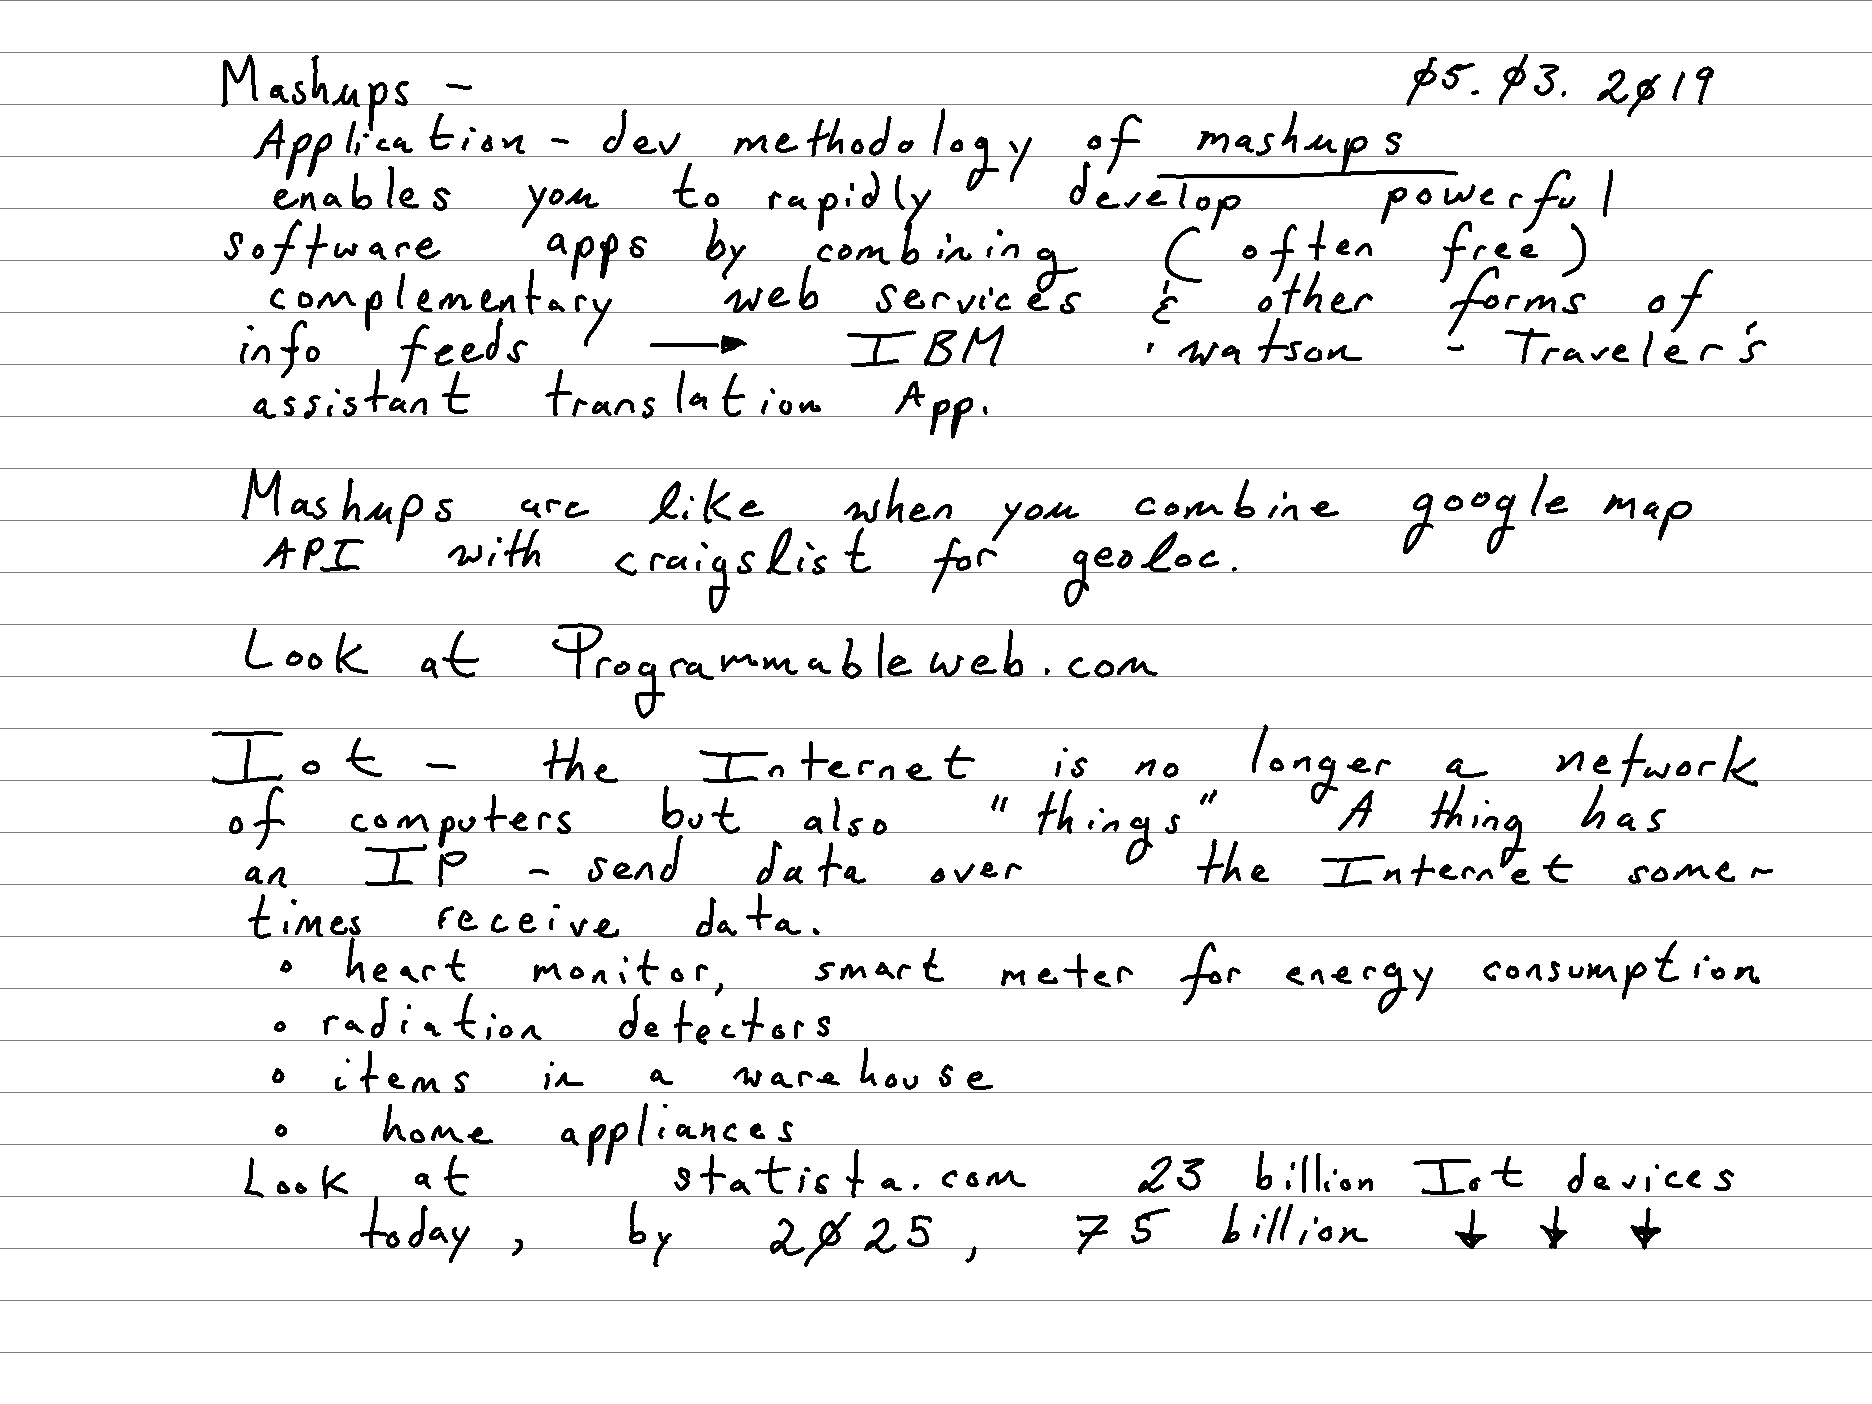 Mashups - 05.03.2019
Application - dev methodology of mashups
enables you to rapidly develop powerful
software apps by combining (often free)
complementary web services & other forms of
info feeds → IBM · watson - Traveler's
assistant translation App.
Mashups are like when you combine google map
API with craigslist for geoloc.
Look at Programmableweb.com
Iot - the Internet is no longer a network
of computers but also "things" A thing has
an IP - send data over the Internet some-
times receive data.
• heart monitor, smart meter for energy consumption
• radiation detectors
• items in a warehouse
• home appliances
Look at statista.com 23 billion Iot devices
today, by 2025, 75 billion ↓ ↓ ↓